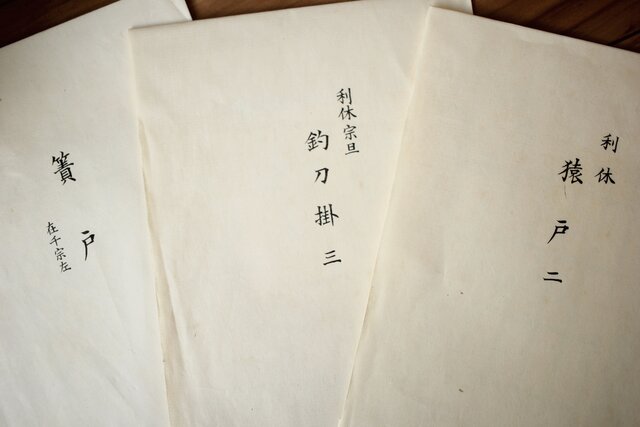 利休
猿戸二
利休宗旦
釣刀掛三
簀戸
在千宗左